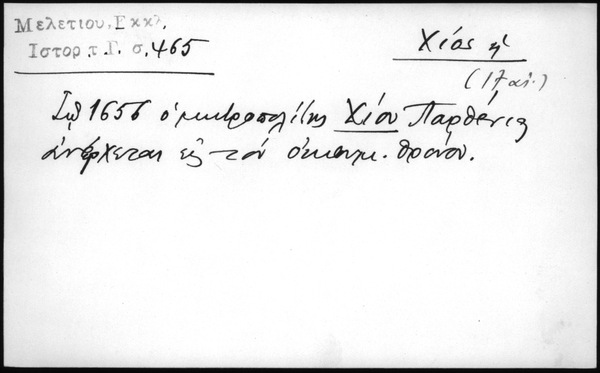 Μελετίου, Εκκλ.
Ιστορ. τ. Γ. σ. 465
Χίος ἡ
(17 αἰ.)
Τῷ 1656 ὁ μητροπολίτης Χίου Παρθένιος
ἀνέρχεται εἰς τὸν οἰκουμ. θρόνον.